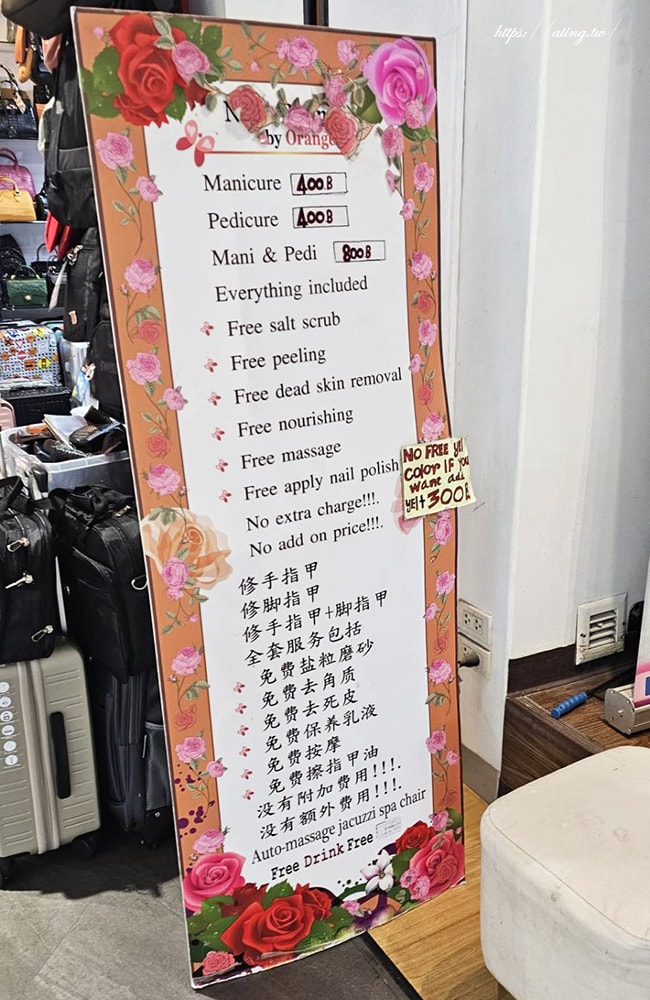 https://ating.tw/
by Orange
Manicure 400B
Pedicure 400B
Mani & Pedi 800B
Everything included
Free salt scrub
Free peeling
Free dead skin removal
Free nourishing
Free massage
Free apply nail polish
No extra charge!!!.
No add on price!!!.
NO FREE
COLOR IF YOU
want add
300B
修手指甲
修脚指甲
修手指甲+脚指甲
全套服务包括
免费盐粒磨砂
免费去角质
免费去死皮
免费保养乳液
免费按摩
免费擦指甲油
没有附加费用!!!.
没有额外费用!!!.
Auto-massage jacuzzi spa chair
Free Drink Free